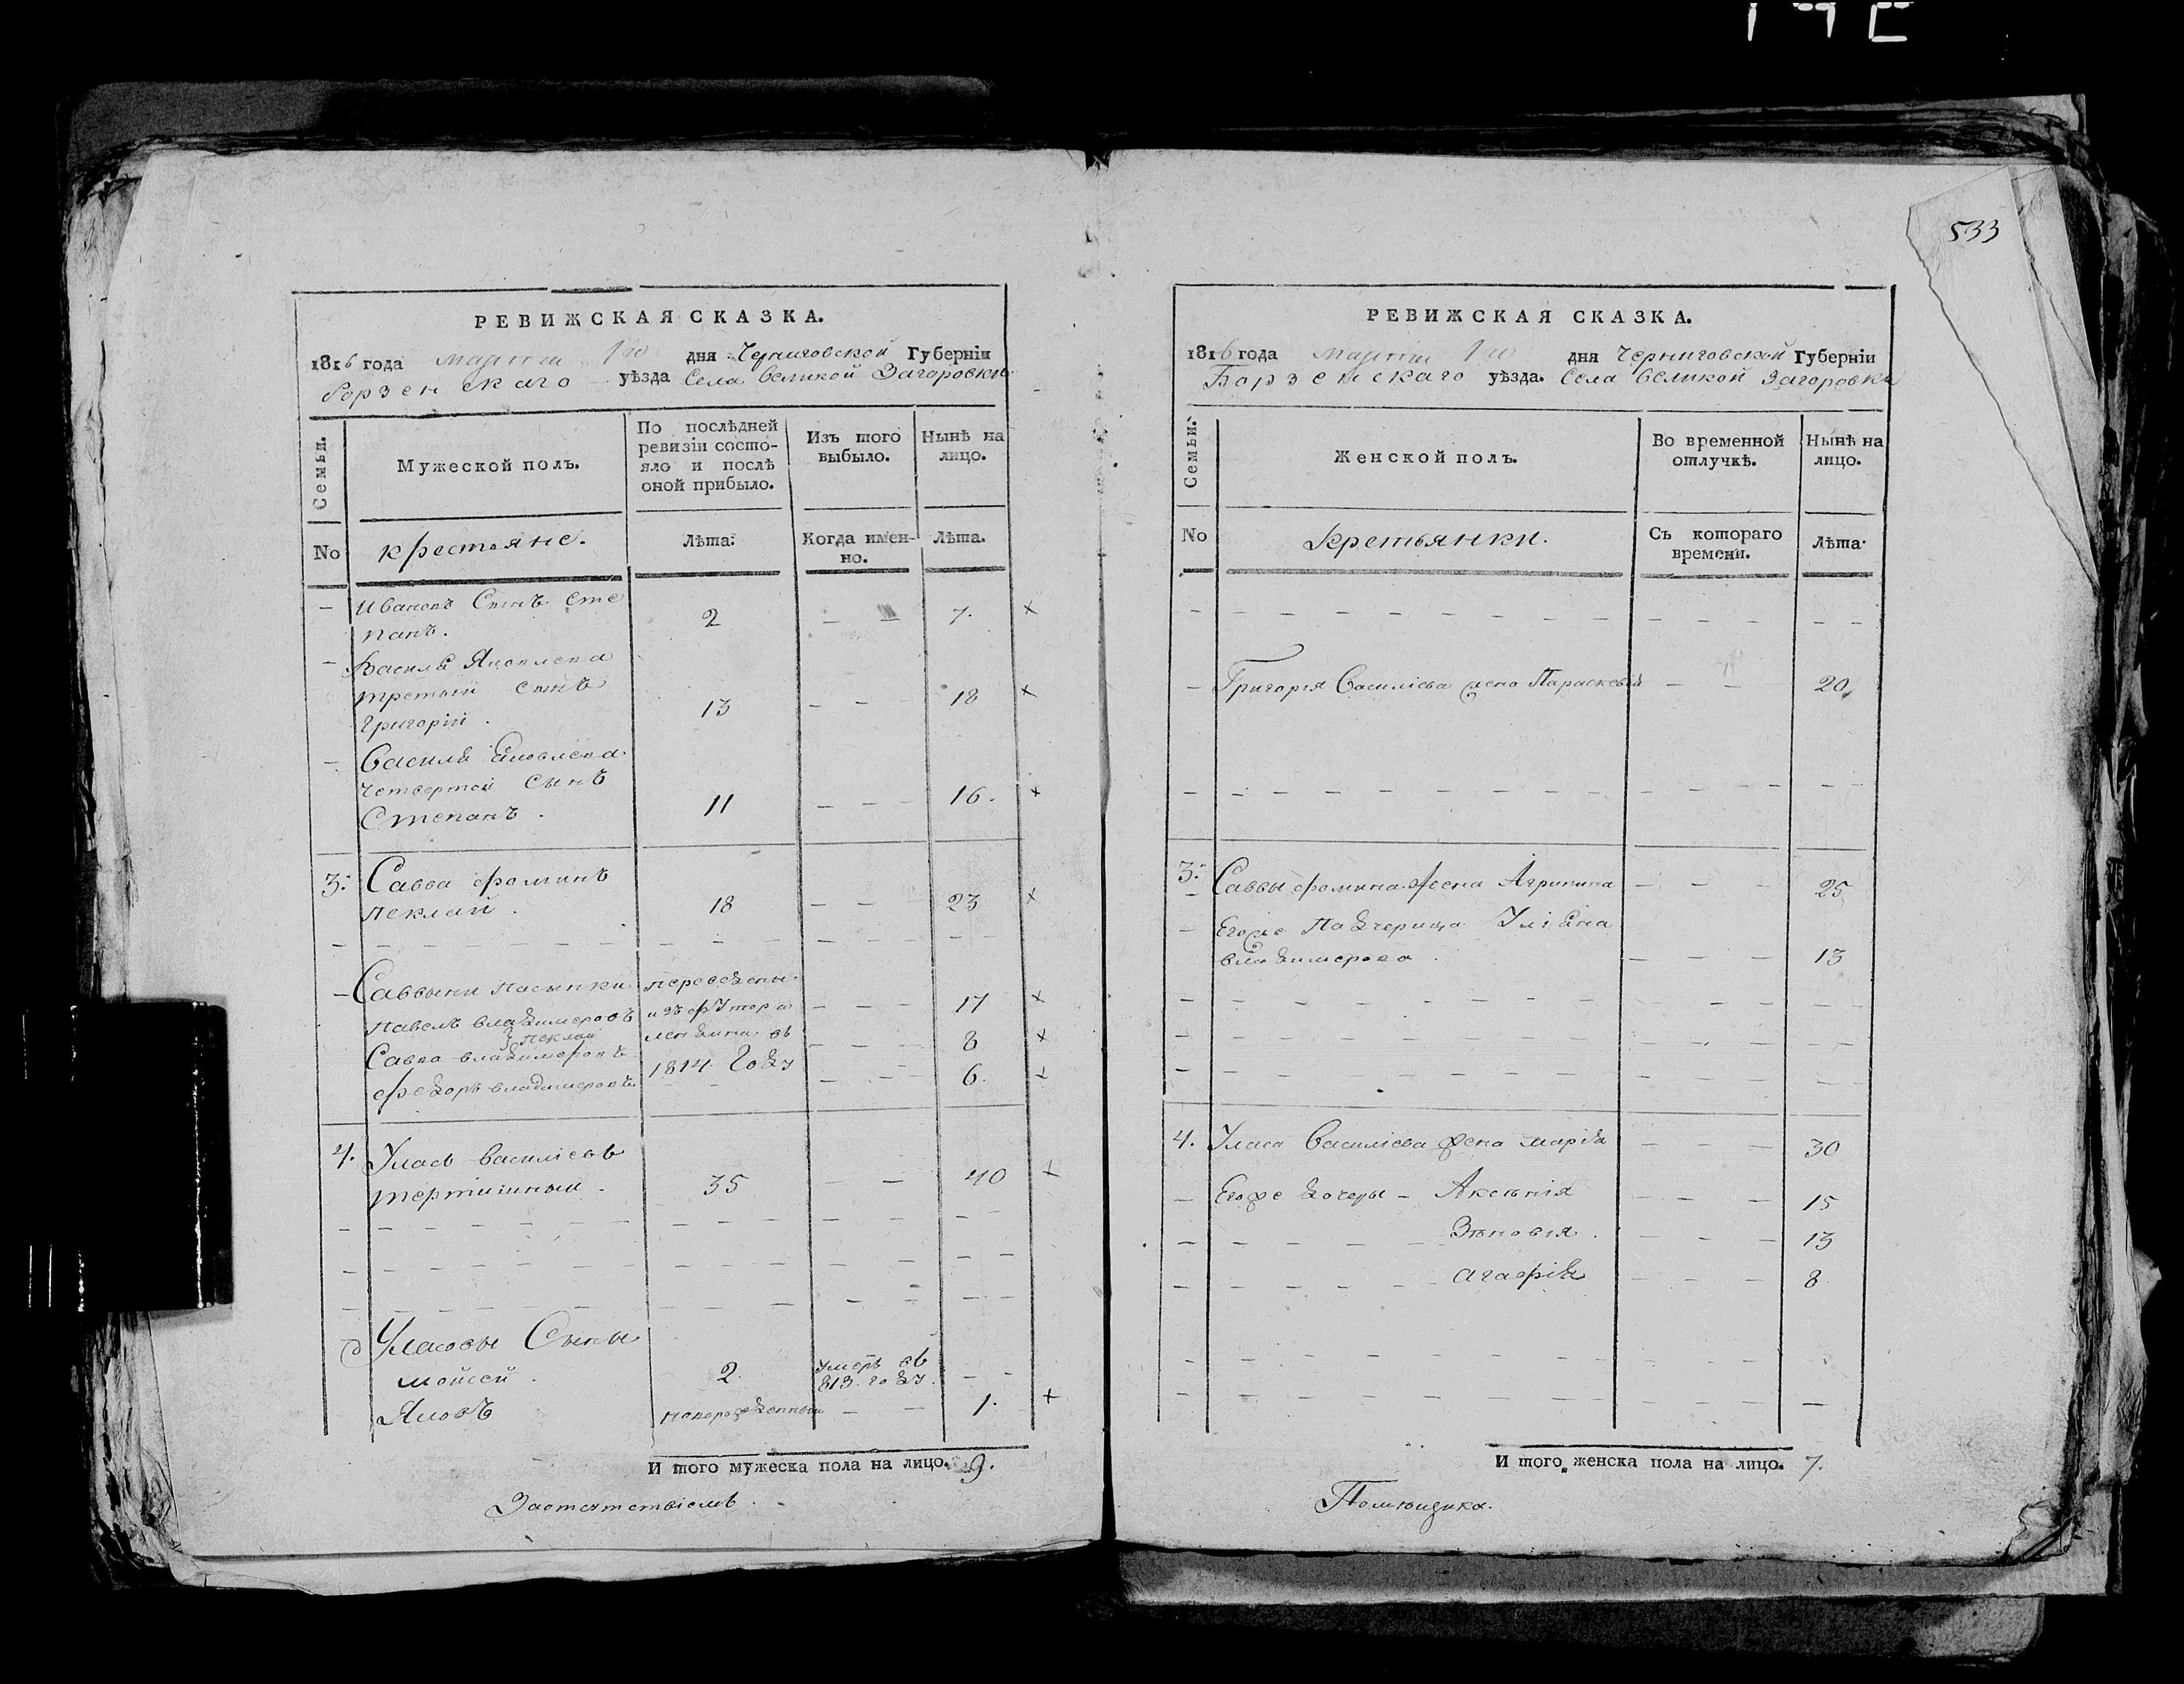 533
РЕВИЖСКАЯ СКАЗКА.
1816 года марта 1го дня Черниговской Губерніи
Борзенскаго уѣзда Села Великой Загоровки
Семьи.
Мужеской полъ.
По послѣдней
ревизіи состо-
яло и послѣ
оной прибыло.
Изъ того
выбыло.
Нынѣ на
лицо.
No
крестьяне.
Лѣта.
Когда имен-
но.
Лѣта.
Ивановъ Сынъ Сте
панъ. 2 7.
Василя Яковлева
третий сынъ
Григорій. 13 18
Василя Яковлева
четвертой сынъ
Степанъ. 11 16.
3. Савва Фоминъ
Пеклай. 18 23
Саввыни пасынки переведены
Павелъ Владимеровъ изъ футора 17
Пеклай
Савва Владимеровъ въ 8
Федоръ Владимеровъ 1814 году 6.
4. Уласъ Василіевъ
35 40
Уласовы Сыны
Мойсей. 2 умеръ въ
813 году.
Яковъ новорожденный 1.
И того мужеска пола на лицо. 9.
РЕВИЖСКАЯ СКАЗКА.
1816 года марта 1го дня Черниговской Губерніи
Борзенскаго уѣзда. Села Великой Загоровки
Семьи.
Женской полъ.
Во временной
отлучкѣ.
Нынѣ на
лицо.
No
Кретьянки.
Съ котораго
времени.
Лѣта.
Григорія Василіева жена Параскевія 20
3. Саввы Фомина жена Агрипина 25
Егоже Падчерица Уліяна
Владимерова. 13
4. Уласа Василіева жена Марія 30
Егоже дочеры Аксѣнія 15
Зѣновія. 13
Агафія 8
И того женска пола на лицо. 7.